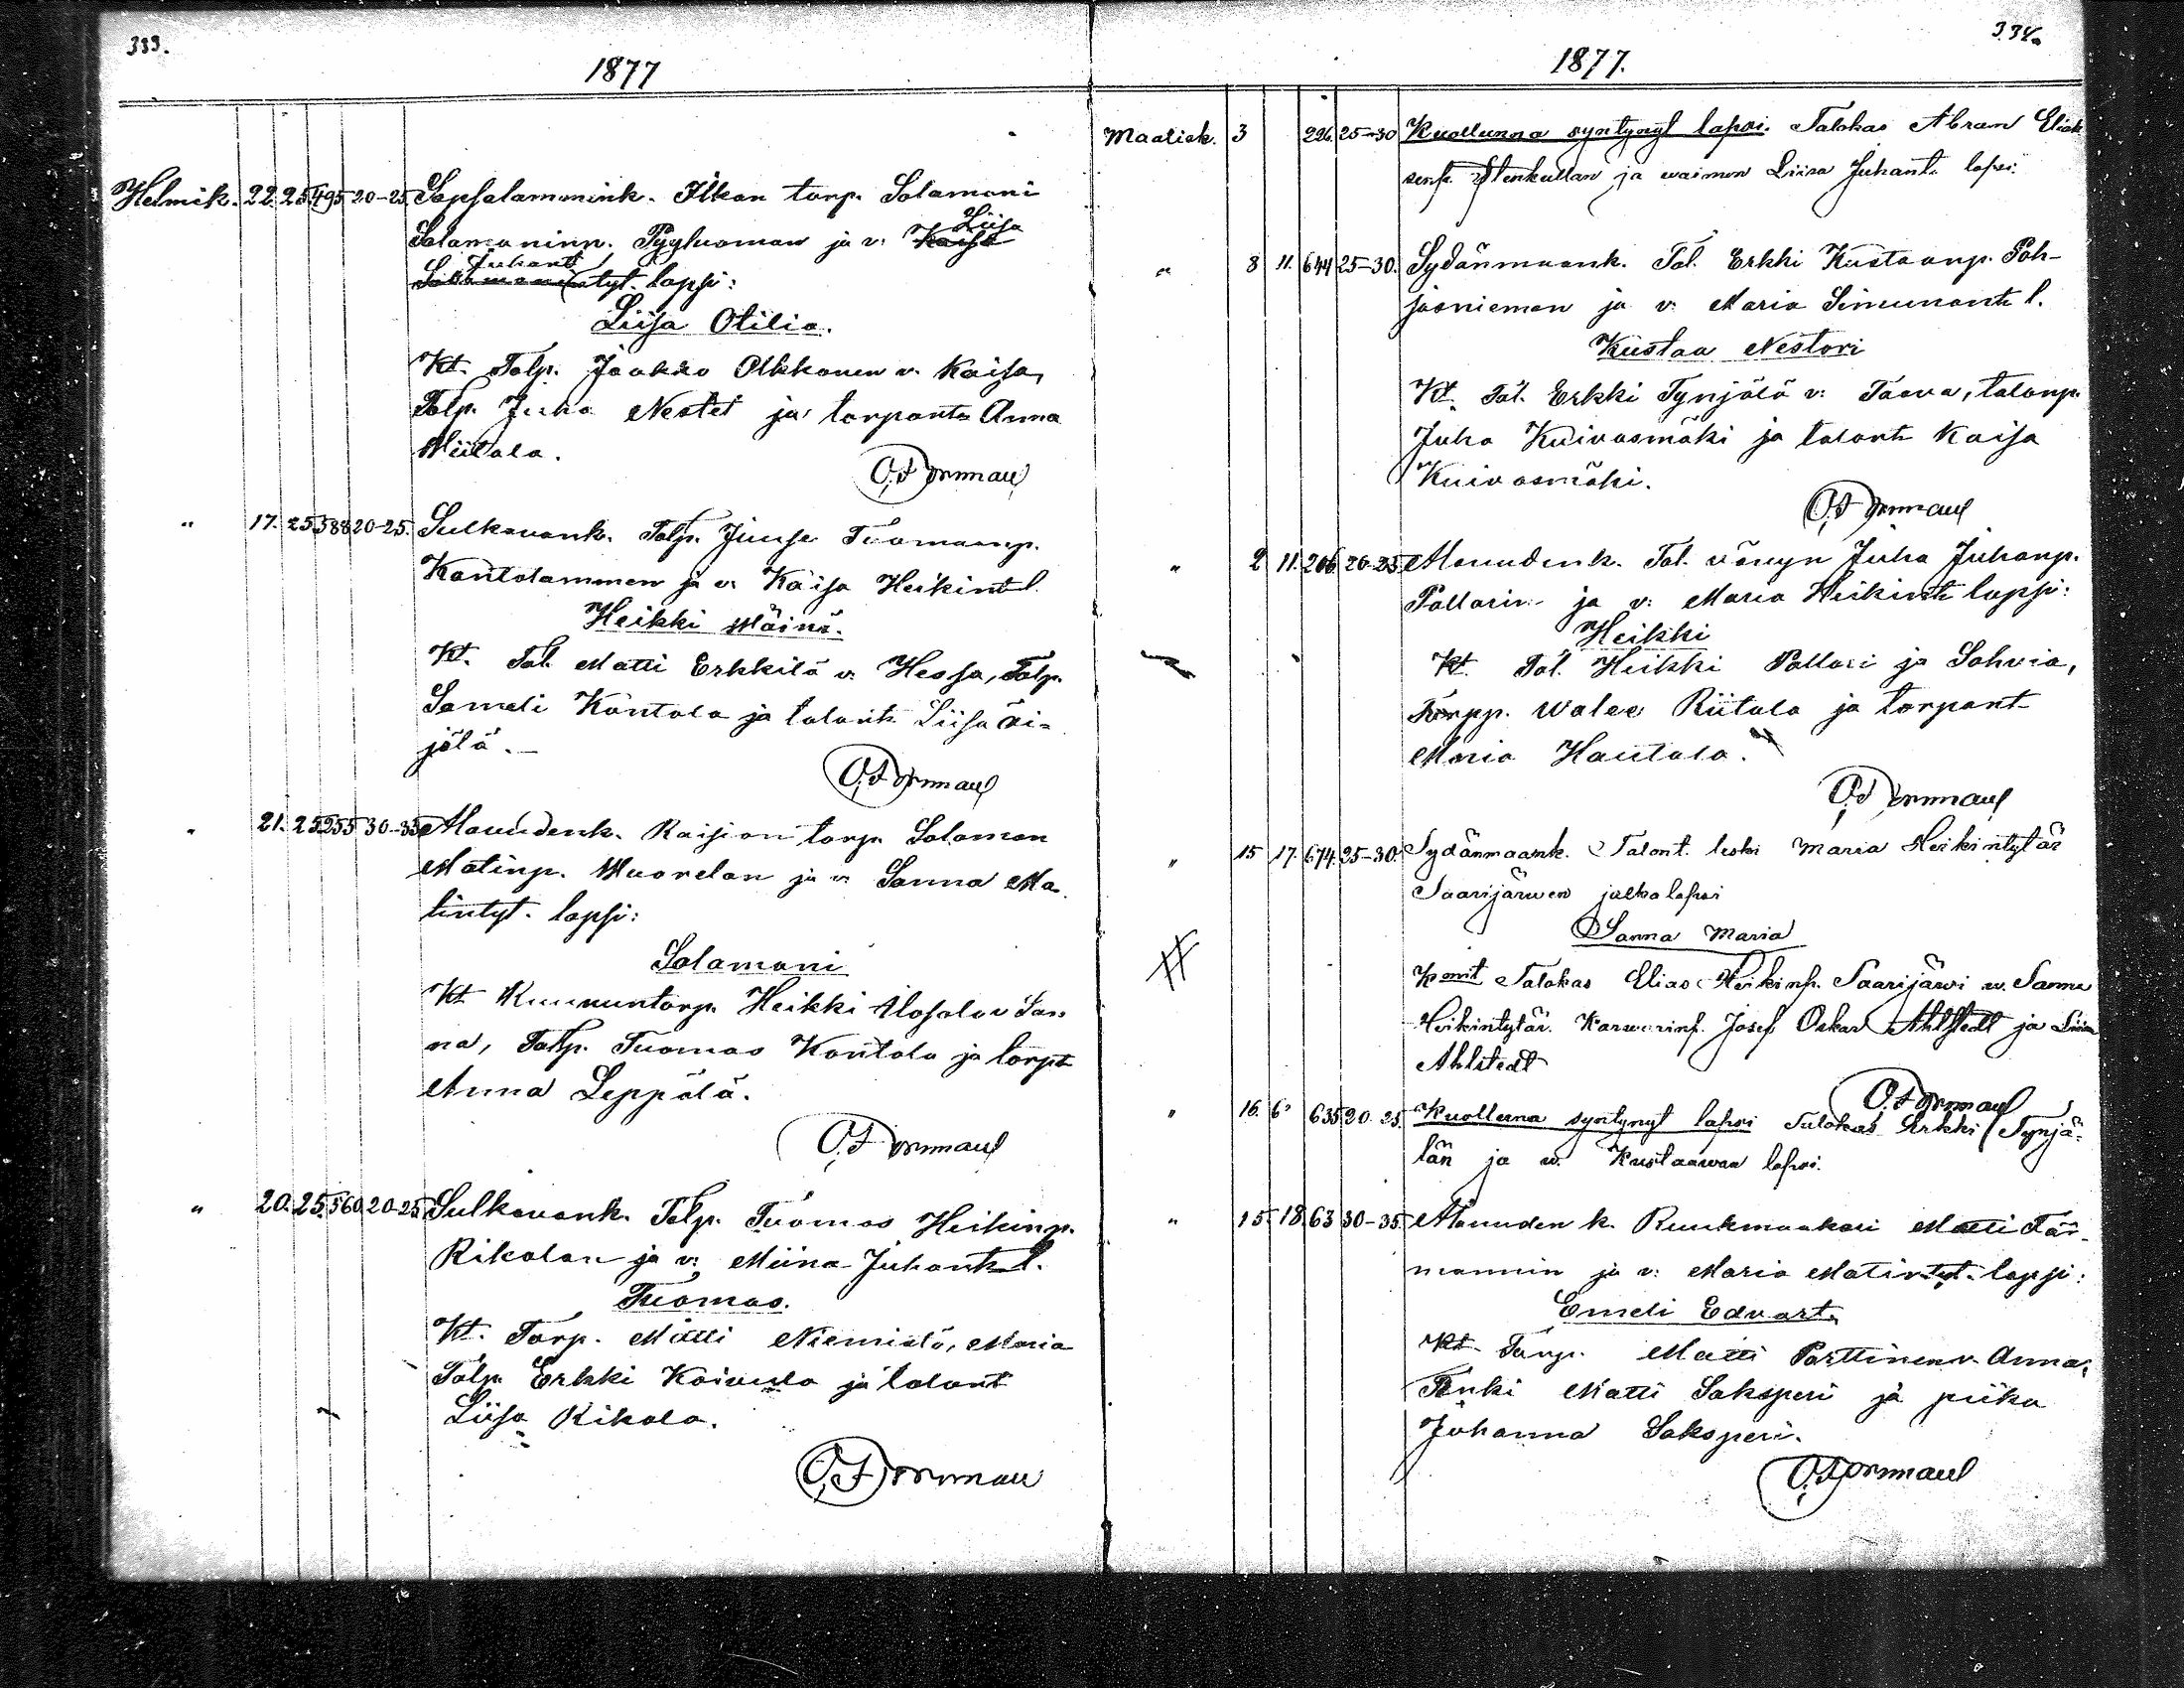 333.
1877
Helmik. 22. 25. 495 20-25. Sapsalammink. Ilkan torp. Salamoni
Salamoninp. Pyyluoman ja v: Kaisa Liisa
Salamonin Juhant tyt. lapsi:
Liisa Otilia.
Kt. Talp. Jaakko Akkonen v. Kaisa,
Talp. Juha Nestet ja torpant. Anna
Miilala.
O.F. ormaul
" 17. 25 588 20-25. Sulkavank. Talp. Juuse Tuomaanp.
Kantolammen ja v. Kaisa Heikint. l.
Heikki Wäinö.
Kt. Tal. Matti Erkkilä v. Hessa, Talp.
Sameli Kantola ja talont. Liisa Äi-
jälä.
O.F. ormaul
" 21. 25 255 30-35 Alaudenk. Raision torp. Salamon
Matinp. Wuorelan ja v. Sanna Ma-
tintyt. lapsi:
Salamoni
Kt Kruununtorp. Heikki Alasalo v San-
na, Talp. Tuomas Kantola ja torpt
Anna Leppälä.
O.F. ormaul
" 20. 25. 560. 20-25 Sulkavank. Talp. Tuomas Heikinp.
Rikalan ja v: Miina Juhant. l.
Tuomas.
Kt. Torp. Matti Niemistö, Maria
Talp. Erkki Koivula ja talont
Liisa Rikala.
O.F. ormaul
334.
1877.
Maalisk. 3 226. 25-30 Kuolluna syntynyt lapsi. Talokas Abram Eliak
senp. Stenkullan ja waimon Liisa Juhant. lapsi.
" 8 11. 644 25-30. Sydänmaank. Tal. Erkki Kustaanp. Poh-
jasniemen ja v: Maria Simunant. l.
Kustaa Nestori
Kt. Tal. Erkki Tynjälä v: Taava, talonp.
Juha Kuivasmäki ja talont. Kaisa
Kuivasmäki.
O.F. ormaul
" 2 11. 206 20-25 Alaudenk. Tal. vävyn Juha Juhanp.
Pallarin ja v: Maria Heikint. lapsi:
Heikki
Kt. Tal. Heikki Pallari ja Sohvia,
Torpp. Walee Riitala ja torpant
Maria Hautala.
O.F. ormaul
" 15 17. 674. 25-30. Sydänmaank. Talont. leski Maria Heikintytär
Saarijärwen jalka lapsi
Sanna Maria
Komit Talokas Elias Heikinp. Saarijärwi w. Sanna
Heikintytär. Karwarinp. Josef Oskar Ahlstedt ja Liisa
Ahlstedt
O.F. ormaul
" 16. 6 635 20 25. Kuolluna syntynyt lapsi Talokas Erkki Tynjä-
län ja w. Kustaawan lapsi.
" 15. 18 63 30-35 Alauden k. Ruukmaakari Matti Tär-
mannin ja v: Maria Matintyt. lapsi:
Emeli Edvart.
Kt. Torp. Matti Porttinen v. Anna,
Renki Matti Saksperi ja piika
Johanna Saksperi.
O.F. ormaul